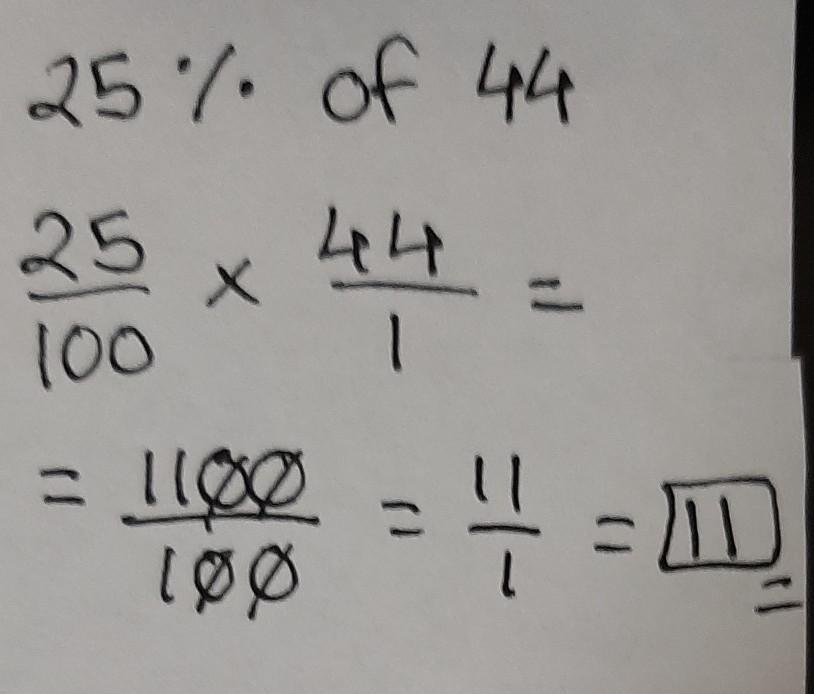 25 % of 44
25/100 × 44/1 =
= 1100/100 = 11/1 = 11
=